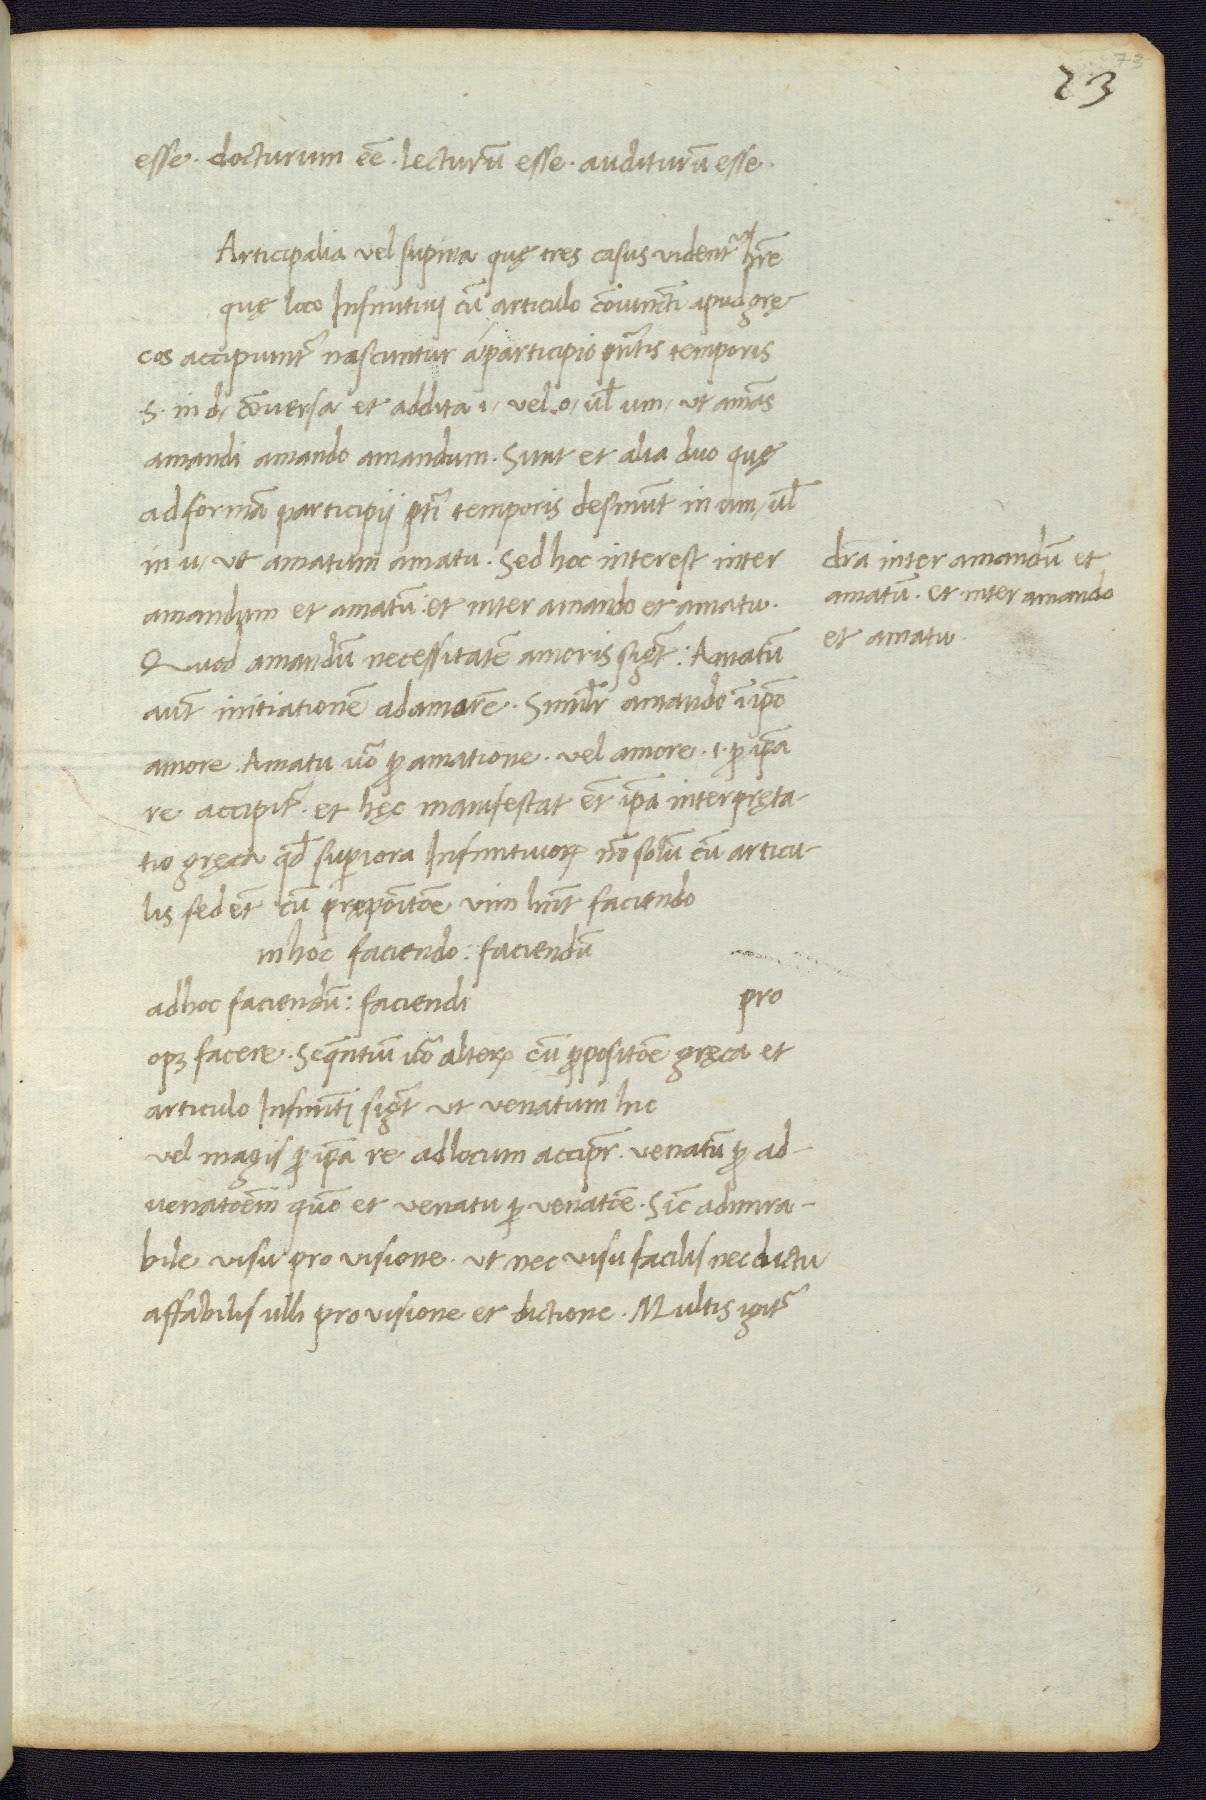 73
23
esse. docturum eē. lecturū esse. auditurū esse.
Articipalia vel supina quę tres casus videntr̄ hr̄e
quę loco Infinitiui cū articulo cōiuncti apud gręcos
accipiunt̄ nascuntur a participio pn̄tis temporis
s. in d/ cōuersa et addita i/ vel o/ ul̄ um/ ut amās
amandi amando amandum. Sunt et alia duo quę
ad formā participij pt̄i temporis desinūt in um/ ul̄
in u/ ut amatum amatu. Sed hoc interest inter
amandum et amatū. et inter amando et amatu.
Quod amandū necessitatē amoris sigt̄: Amatū
aut̄ initiationē ad amorē. Simil̄r amando ī ip̄o
amore. Amatu uō ꝓ amatione. vel amore. i. ꝓ ip̄a
re accipit̄. et hęc manifestat et̄ ip̄a interpręta-
tio gręca qd̄ superiora Infinitiuoꝝ nō solū cū articu-
lis sed et̄ cū pręponit̄oe vim hn̄t faciendo
in hoc faciendo: faciendū
ad hoc faciendū: faciendi pro
opꝫ facere. Seqn̄tiū uō alteꝝ cū ꝓposito̅e gręca et
articulo Infinit̄i sigt̄ ut venatum hic
vel magis ꝓ ip̄a re ad locum accipr̄. venatū ꝓ ad-
uenatōem quō et venatu ꝓ venatōe. Sic̄ admira-
bile visu pro visione. ut nec visu facilis nec dictu
affabilis ulli pro visione et dictione. Multis igit̄
dr̄a inter amandū et
amatū. et inter amando
et amatu.